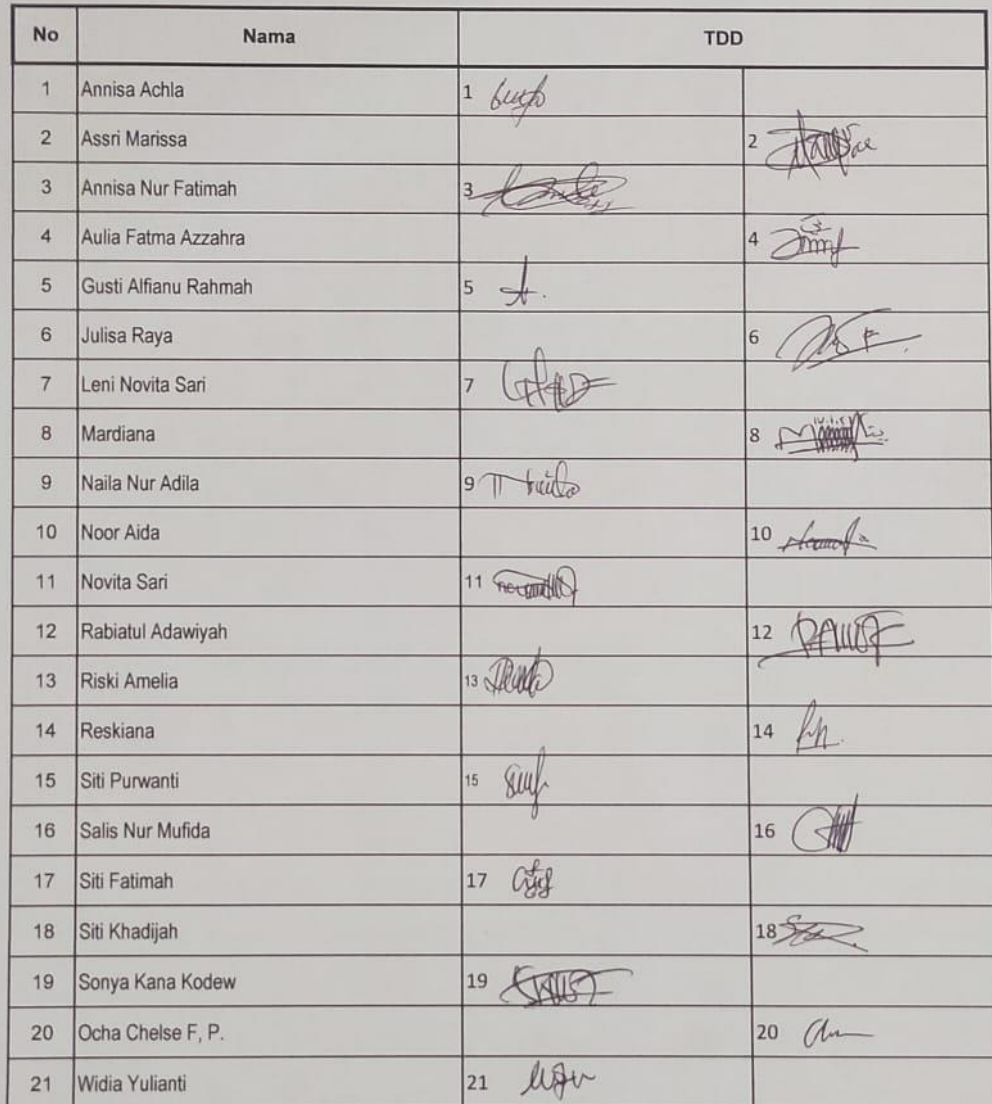 No Nama TDD
1 Annisa Achla 1
2 Assri Marissa 2
3 Annisa Nur Fatimah 3
4 Aulia Fatma Azzahra 4
5 Gusti Alfianu Rahmah 5
6 Julisa Raya 6
7 Leni Novita Sari 7
8 Mardiana 8
9 Naila Nur Adila 9
10 Noor Aida 10
11 Novita Sari 11
12 Rabiatul Adawiyah 12
13 Riski Amelia 13
14 Reskiana 14
15 Siti Purwanti 15
16 Salis Nur Mufida 16
17 Siti Fatimah 17
18 Siti Khadijah 18
19 Sonya Kana Kodew 19
20 Ocha Chelse F, P. 20
21 Widia Yulianti 21